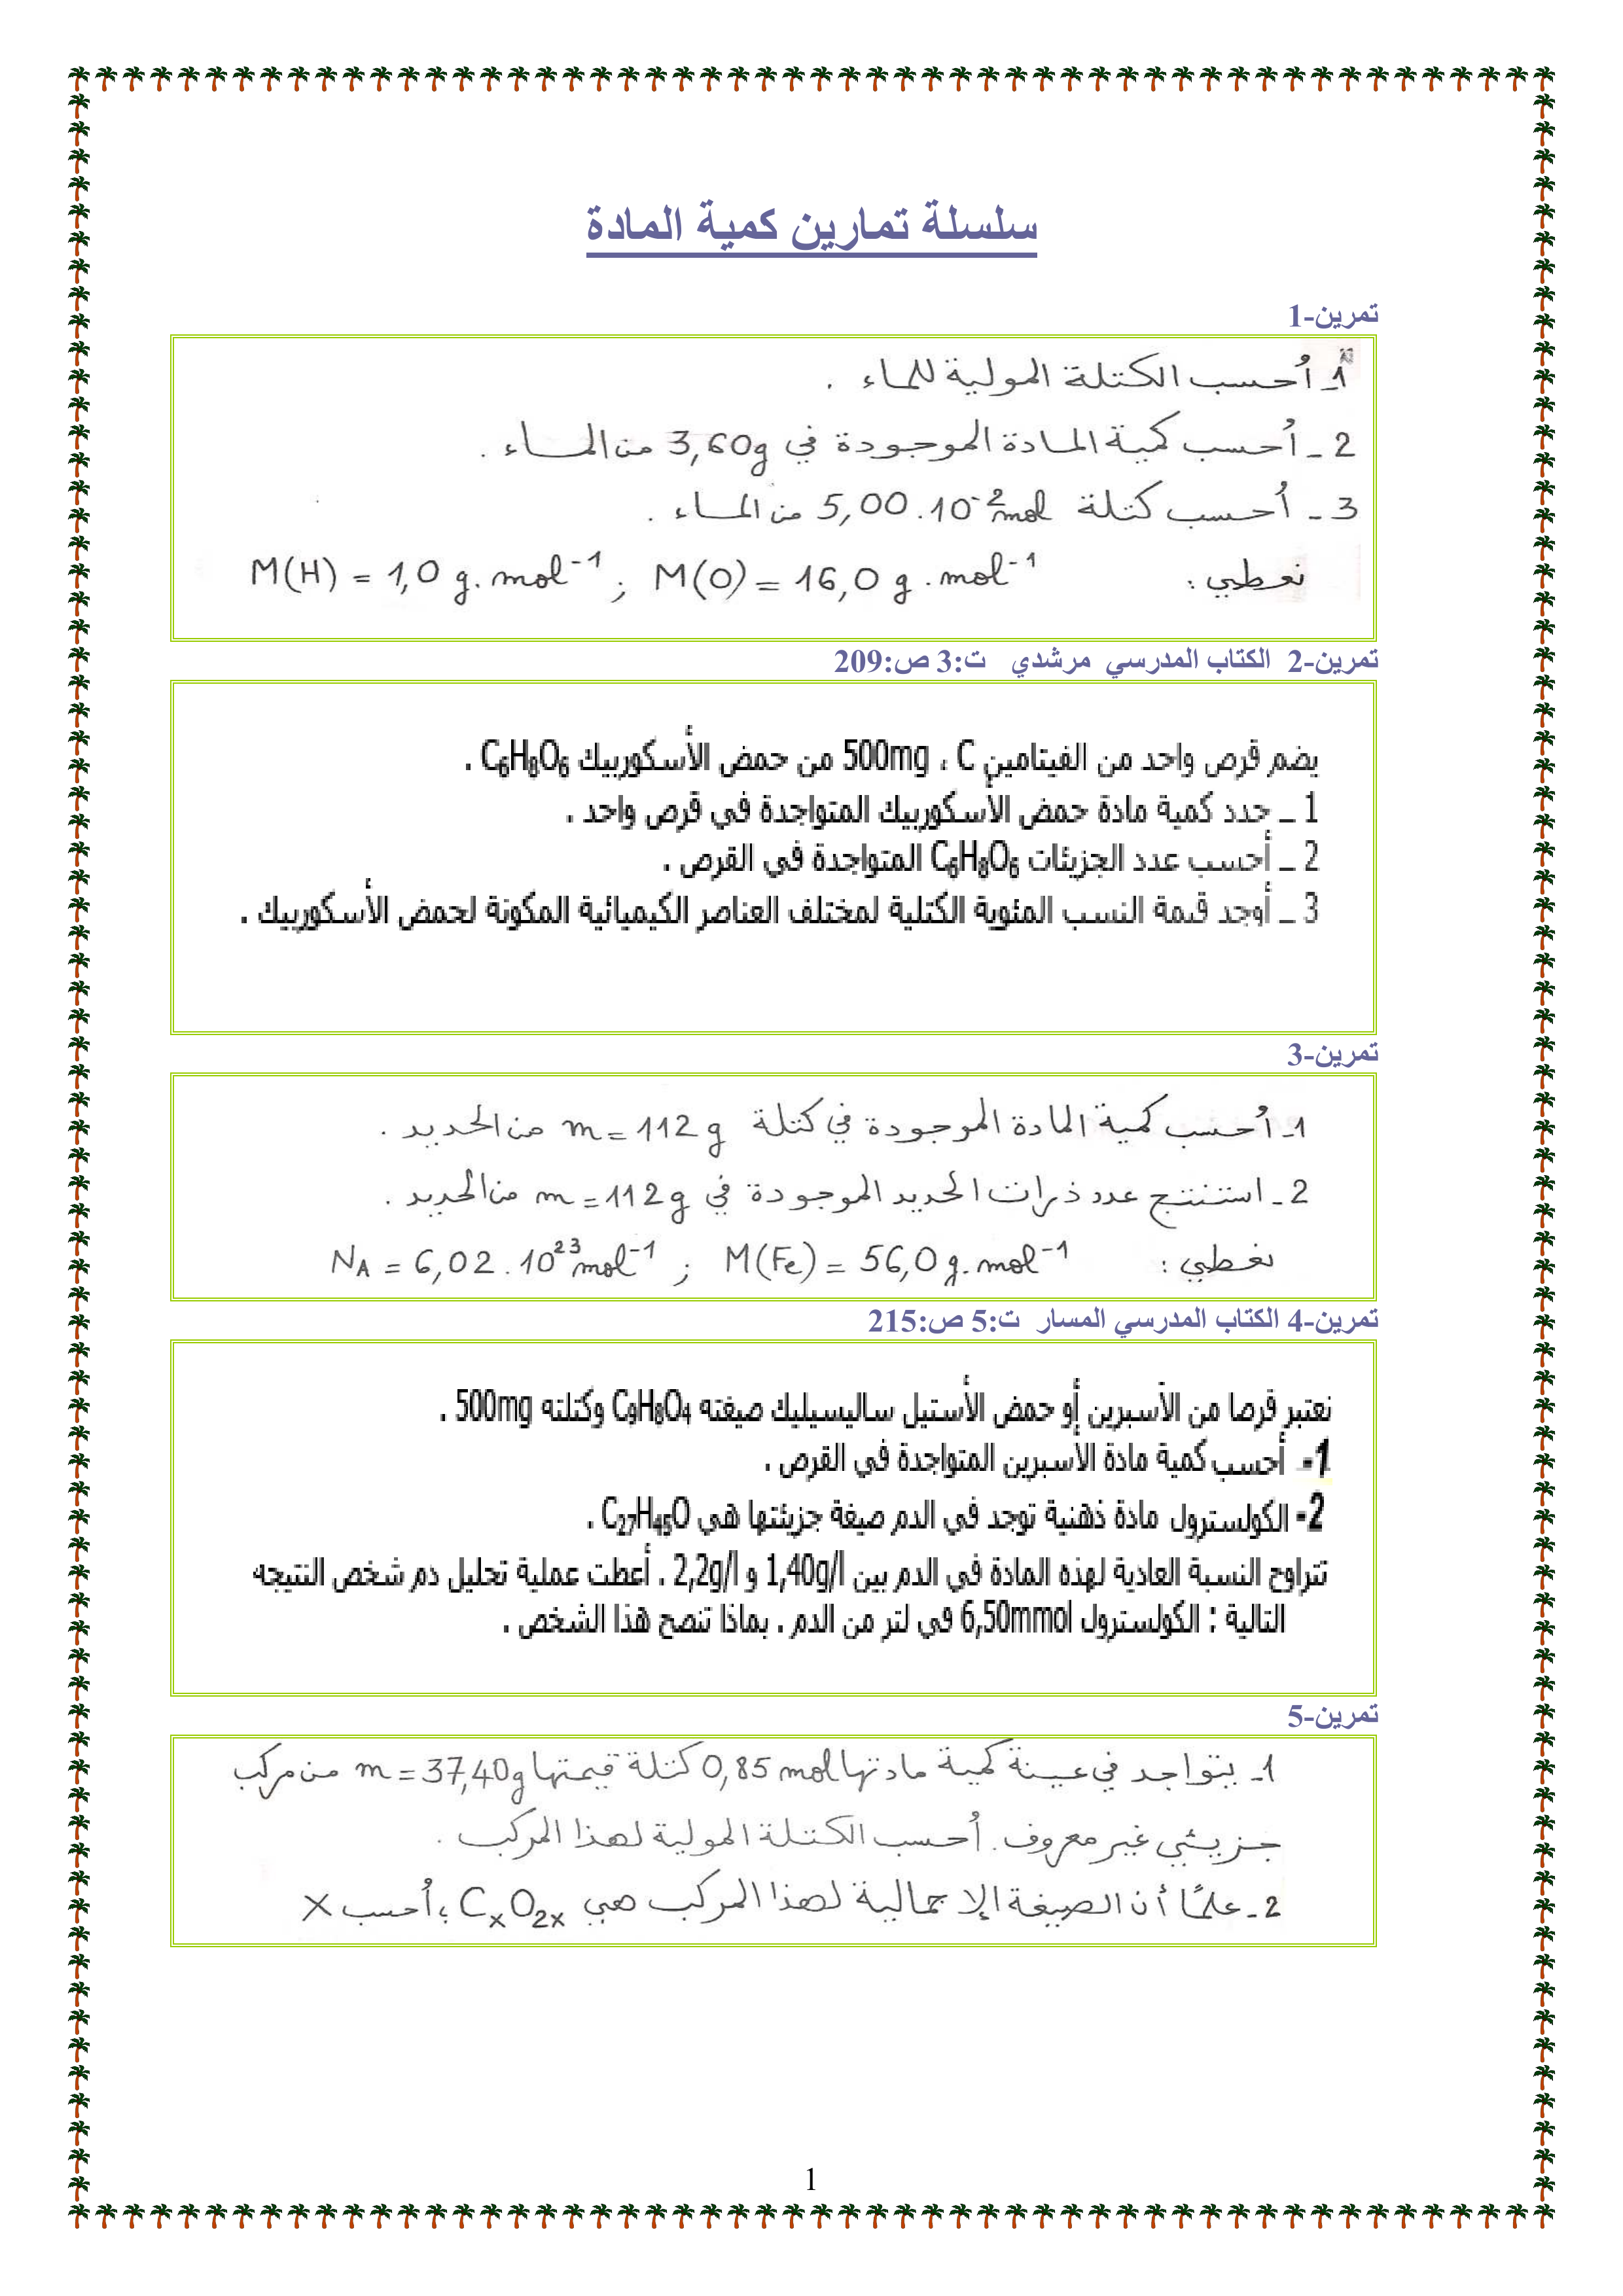 سلسلة تمارين كمية المادة
تمرين-1
1_ أحسب الكتلة المولية للماء .
2_ أحسب كمية المادة الموجودة في 3,60g من الماء .
3_ أحسب كتلة 5,00.10⁻²mol من الماء .
نعطي : M(H) = 1,0 g.mol⁻¹ ; M(O) = 16,0 g.mol⁻¹
تمرين-2 الكتاب المدرسي مرشدي ت:3 ص:209
يضم قرص واحد من الفيتامين C ، 500mg من حمض الأسكوربيك C₆H₈O₆ .
1 _ حدد كمية مادة حمض الأسكوربيك المتواجدة في قرص واحد .
2 _ أحسب عدد الجزيئات C₆H₈O₆ المتواجدة في القرص .
3 _ أوجد قيمة النسب المئوية الكتلية لمختلف العناصر الكيميائية المكونة لحمض الأسكوربيك .
تمرين-3
1_ أحسب كمية المادة الموجودة في كتلة m = 112 g من الحديد .
2_ استنتج عدد ذرات الحديد الموجودة في m = 112 g من الحديد .
نعطي : M(Fe) = 56,0 g.mol⁻¹ ; N_A = 6,02.10²³mol⁻¹
تمرين-4 الكتاب المدرسي المسار ت:5 ص:215
نعتبر قرصا من الآسبرين أو حمض الأستيل ساليسيليك صيغته C₉H₈O₄ وكتلته 500mg .
1- أحسب كمية مادة الأسبرين المتواجدة في القرص .
2- الكولسترول مادة ذهنية توجد في الدم صيغة جزيئتها هي C₂₇H₄₅O .
تتراوح النسبة العادية لهذه المادة في الدم بين 1,40g/l و 2,2g/l . أعطت عملية تحليل دم شخص النتيجه
التالية : الكولسترول 6,50mmol في لتر من الدم . بماذا تنصح هذا الشخص .
تمرين-5
1_ يتواجد في عينة كمية مادتها 0,85 mol كتلة قيمتها m = 37,40g من مركب
جزيئي غير معروف . أحسب الكتلة المولية لهذا المركب .
2_ علمًا أن الصيغة الإجمالية لهذا المركب هي CₓO₂ₓ ، أحسب x
1